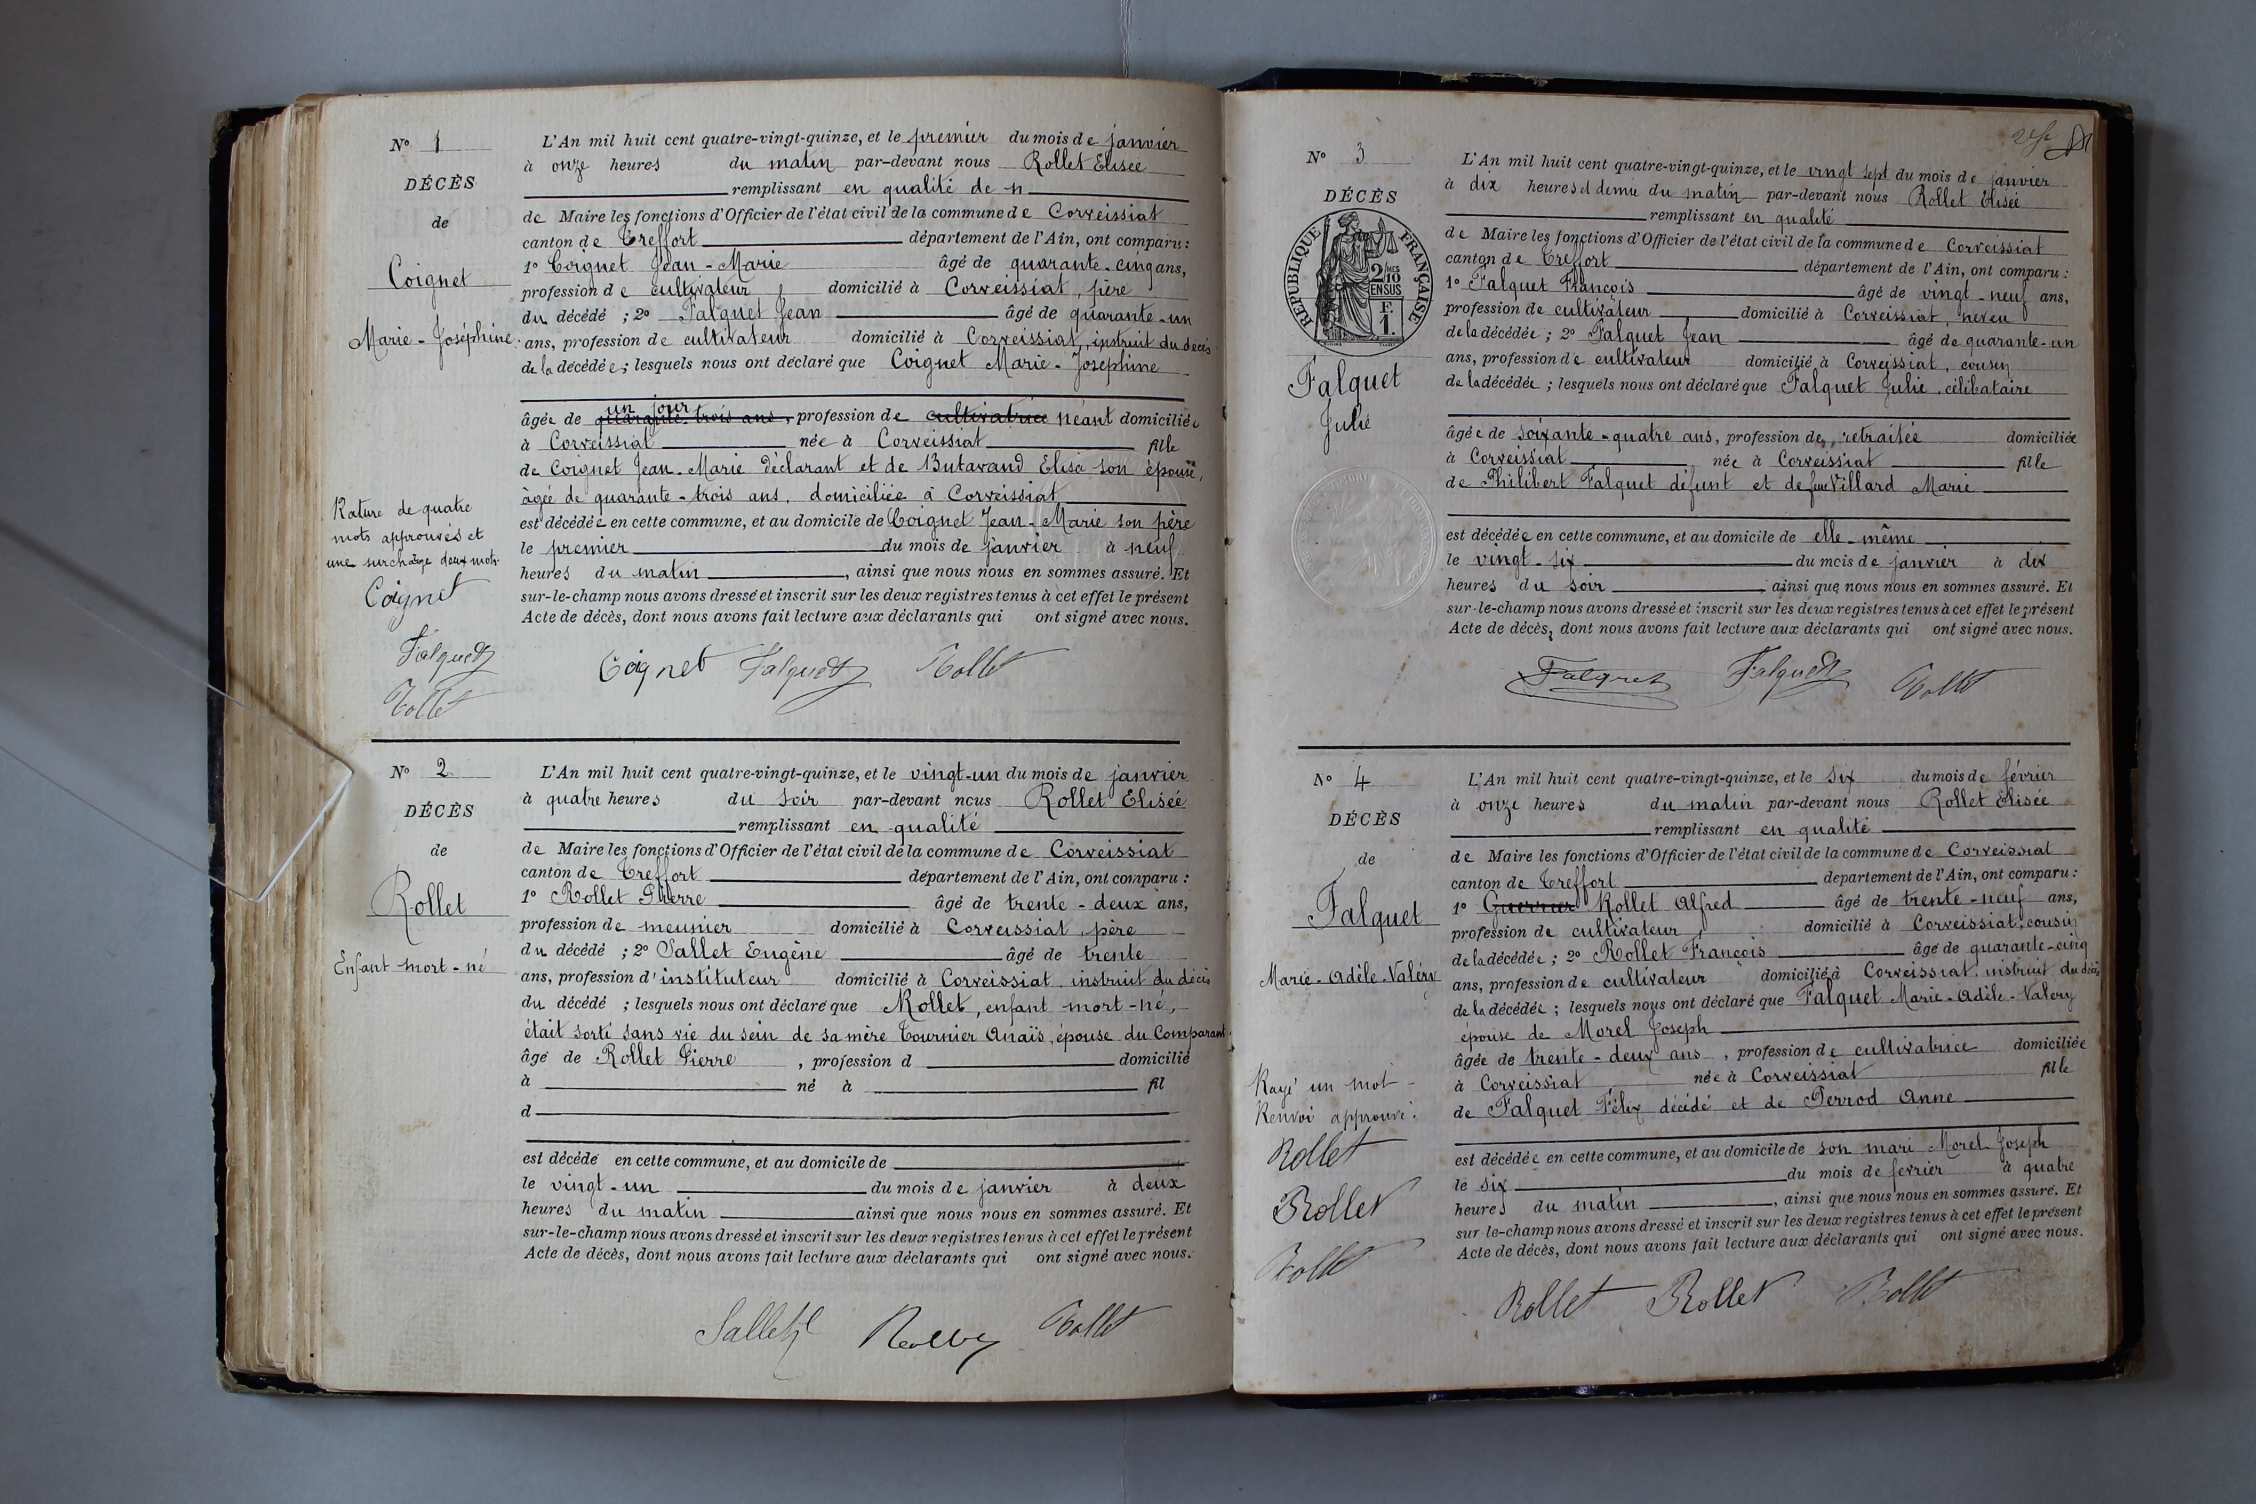 N° 1
DÉCÈS
de
Coignet
Marie-Joséphine.
Rature de quatre
mots approuvés et
une surcharge deux mots
Coignet
Falquet
Rollet
L'An mil huit cent quatre-vingt-quinze, et le premier du mois de janvier
à onze heures du matin par-devant nous Rollet Elisée
remplissant en qualité de n
de Maire les fonctions d'Officier de l'état civil de la commune de Corveissiat
canton de Treffort département de l'Ain, ont comparu :
1° Coignet Jean-Marie âgé de quarante-cinq ans,
profession de cultivateur, domicilié à Corveissiat, père
du décédé ; 2° Falquet Jean âgé de quarante-un
ans, profession de cultivateur domicilié à Corveissiat, instruit du décès
de la décédée ; lesquels nous ont déclaré que Coignet Marie-Joséphine
un jour
âgée de quarante-trois ans, profession de cultivatrice néant domiciliée
à Corveissiat née à Corveissiat fille
de Coignet Jean-Marie déclarant et de Butavand Elisa son épouse,
âgée de quarante-trois ans, domiciliée à Corveissiat
est décédée en cette commune, et au domicile de Coignet Jean-Marie son père
le premier du mois de janvier à neuf
heures du matin, ainsi que nous nous en sommes assuré. Et
sur-le-champ nous avons dressé et inscrit sur les deux registres tenus à cet effet le présent
Acte de décès, dont nous avons fait lecture aux déclarants qui ont signé avec nous.
Coignet Falquet Rollet
N° 2
DÉCÈS
de
Rollet
Enfant mort-né
L'An mil huit cent quatre-vingt-quinze, et le vingt-un du mois de janvier
à quatre heures du soir par-devant nous Rollet Elisée
remplissant en qualité
de Maire les fonctions d'Officier de l'état civil de la commune de Corveissiat
canton de Treffort département de l'Ain, ont comparu :
1° Rollet Pierre âgé de trente-deux ans,
profession de meunier domicilié à Corveissiat, père
du décédé ; 2° Sallet Eugène âgé de trente
ans, profession d'instituteur domicilié à Corveissiat, instruit du décès
du décédé ; lesquels nous ont déclaré que Rollet, enfant mort-né,
était sorti sans vie du sein de sa mère Tournier Anaïs, épouse du Comparant
âgé de Rollet Pierre, profession d domicilié
à né à fil
d
est décédé en cette commune, et au domicile de
le vingt-un du mois de janvier à deux
heures du matin ainsi que nous nous en sommes assuré. Et
sur-le-champ nous avons dressé et inscrit sur les deux registres tenus à cet effet le présent
Acte de décès, dont nous avons fait lecture aux déclarants qui ont signé avec nous.
Sallet Rollet
N° 3
DÉCÈS
RÉPUBLIQUE FRANÇAISE
2/10 MES EN SUS
F. 1.
Falquet
Julie
L'An mil huit cent quatre-vingt-quinze, et le vingt sept du mois de janvier
à dix heures et demie du matin par-devant nous Rollet Elisée
remplissant en qualité
de Maire les fonctions d'Officier de l'état civil de la commune de Corveissiat
canton de Treffort département de l'Ain, ont comparu :
1° Falquet François âgé de vingt-neuf ans,
profession de cultivateur domicilié à Corveissiat, neveu
de la décédée ; 2° Falquet Jean âgé de quarante-un
ans, profession de cultivateur domicilié à Corveissiat, cousin
de la décédée ; lesquels nous ont déclaré que Falquet Julie, célibataire
âgée de soixante-quatre ans, profession de retraitée domiciliée
à Corveissiat née à Corveissiat fille
de Philibert Falquet défunt et de feue Villard Marie
est décédée en cette commune, et au domicile de elle-même
le vingt-six du mois de janvier à dix
heures du soir ainsi que nous nous en sommes assuré. Et
sur-le-champ nous avons dressé et inscrit sur les deux registres tenus à cet effet le présent
Acte de décès, dont nous avons fait lecture aux déclarants qui ont signé avec nous.
Falquet Falquet Rollet
N° 4
DÉCÈS
de
Falquet
Marie-Adèle-Valéry
Rayé un mot
Renvoi approuvé.
Rollet
Rollet
Rollet
L'An mil huit cent quatre-vingt-quinze, et le six du mois de février
à onze heures du matin par-devant nous Rollet Elisée
remplissant en qualité
de Maire les fonctions d'Officier de l'état civil de la commune de Corveissiat
canton de Treffort département de l'Ain, ont comparu :
1° Guerrier Rollet Alfred âgé de trente-neuf ans,
profession de cultivateur domicilié à Corveissiat, cousin
de la décédée ; 2° Rollet François âgé de quarante-cinq
ans, profession de cultivateur domicilié à Corveissiat, instruit du décès
de la décédée ; lesquels nous ont déclaré que Falquet Marie-Adèle-Valery
épouse de Morel Joseph
âgée de trente-deux ans, profession de cultivatrice domiciliée
à Corveissiat née à Corveissiat fille
de Falquet Félix décédé et de Perrod Anne
est décédée en cette commune, et au domicile de son mari Morel Joseph
le six du mois de février à quatre
heures du matin, ainsi que nous nous en sommes assuré. Et
sur-le-champ nous avons dressé et inscrit sur les deux registres tenus à cet effet le présent
Acte de décès, dont nous avons fait lecture aux déclarants qui ont signé avec nous.
Rollet Rollet Rollet